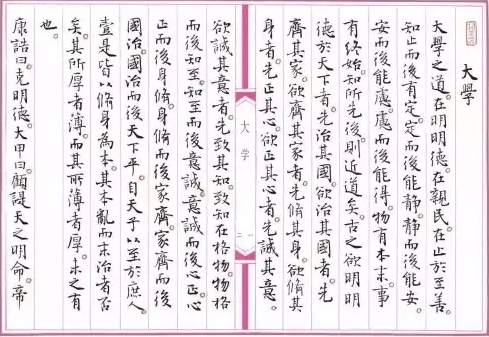 大學
大學之道。在明明德。在親民。在止於至善。
知止而後有定。定而後能靜。靜而後能安。
安而後能慮。慮而後能得。物有本末。事
有終始。知所先後。則近道矣。古之欲明明
德於天下者。先治其國。欲治其國者。先
齊其家。欲齊其家者。先脩其身。欲脩其
身者。先正其心。欲正其心者。先誠其意。
大学
欲誠其意者。先致其知。致知在格物。物格
而後知至。知至而後意誠。意誠而後心正。心
正而後身脩。身脩而後家齊。家齊而後
國治。國治而後天下平。自天子以至於庶人。
壹是皆以脩身為本。其本亂而末治者否
矣。其所厚者薄。而其所薄者厚。未之有
也。
康誥曰。克明德。大甲曰。顧諟天之明命。帝